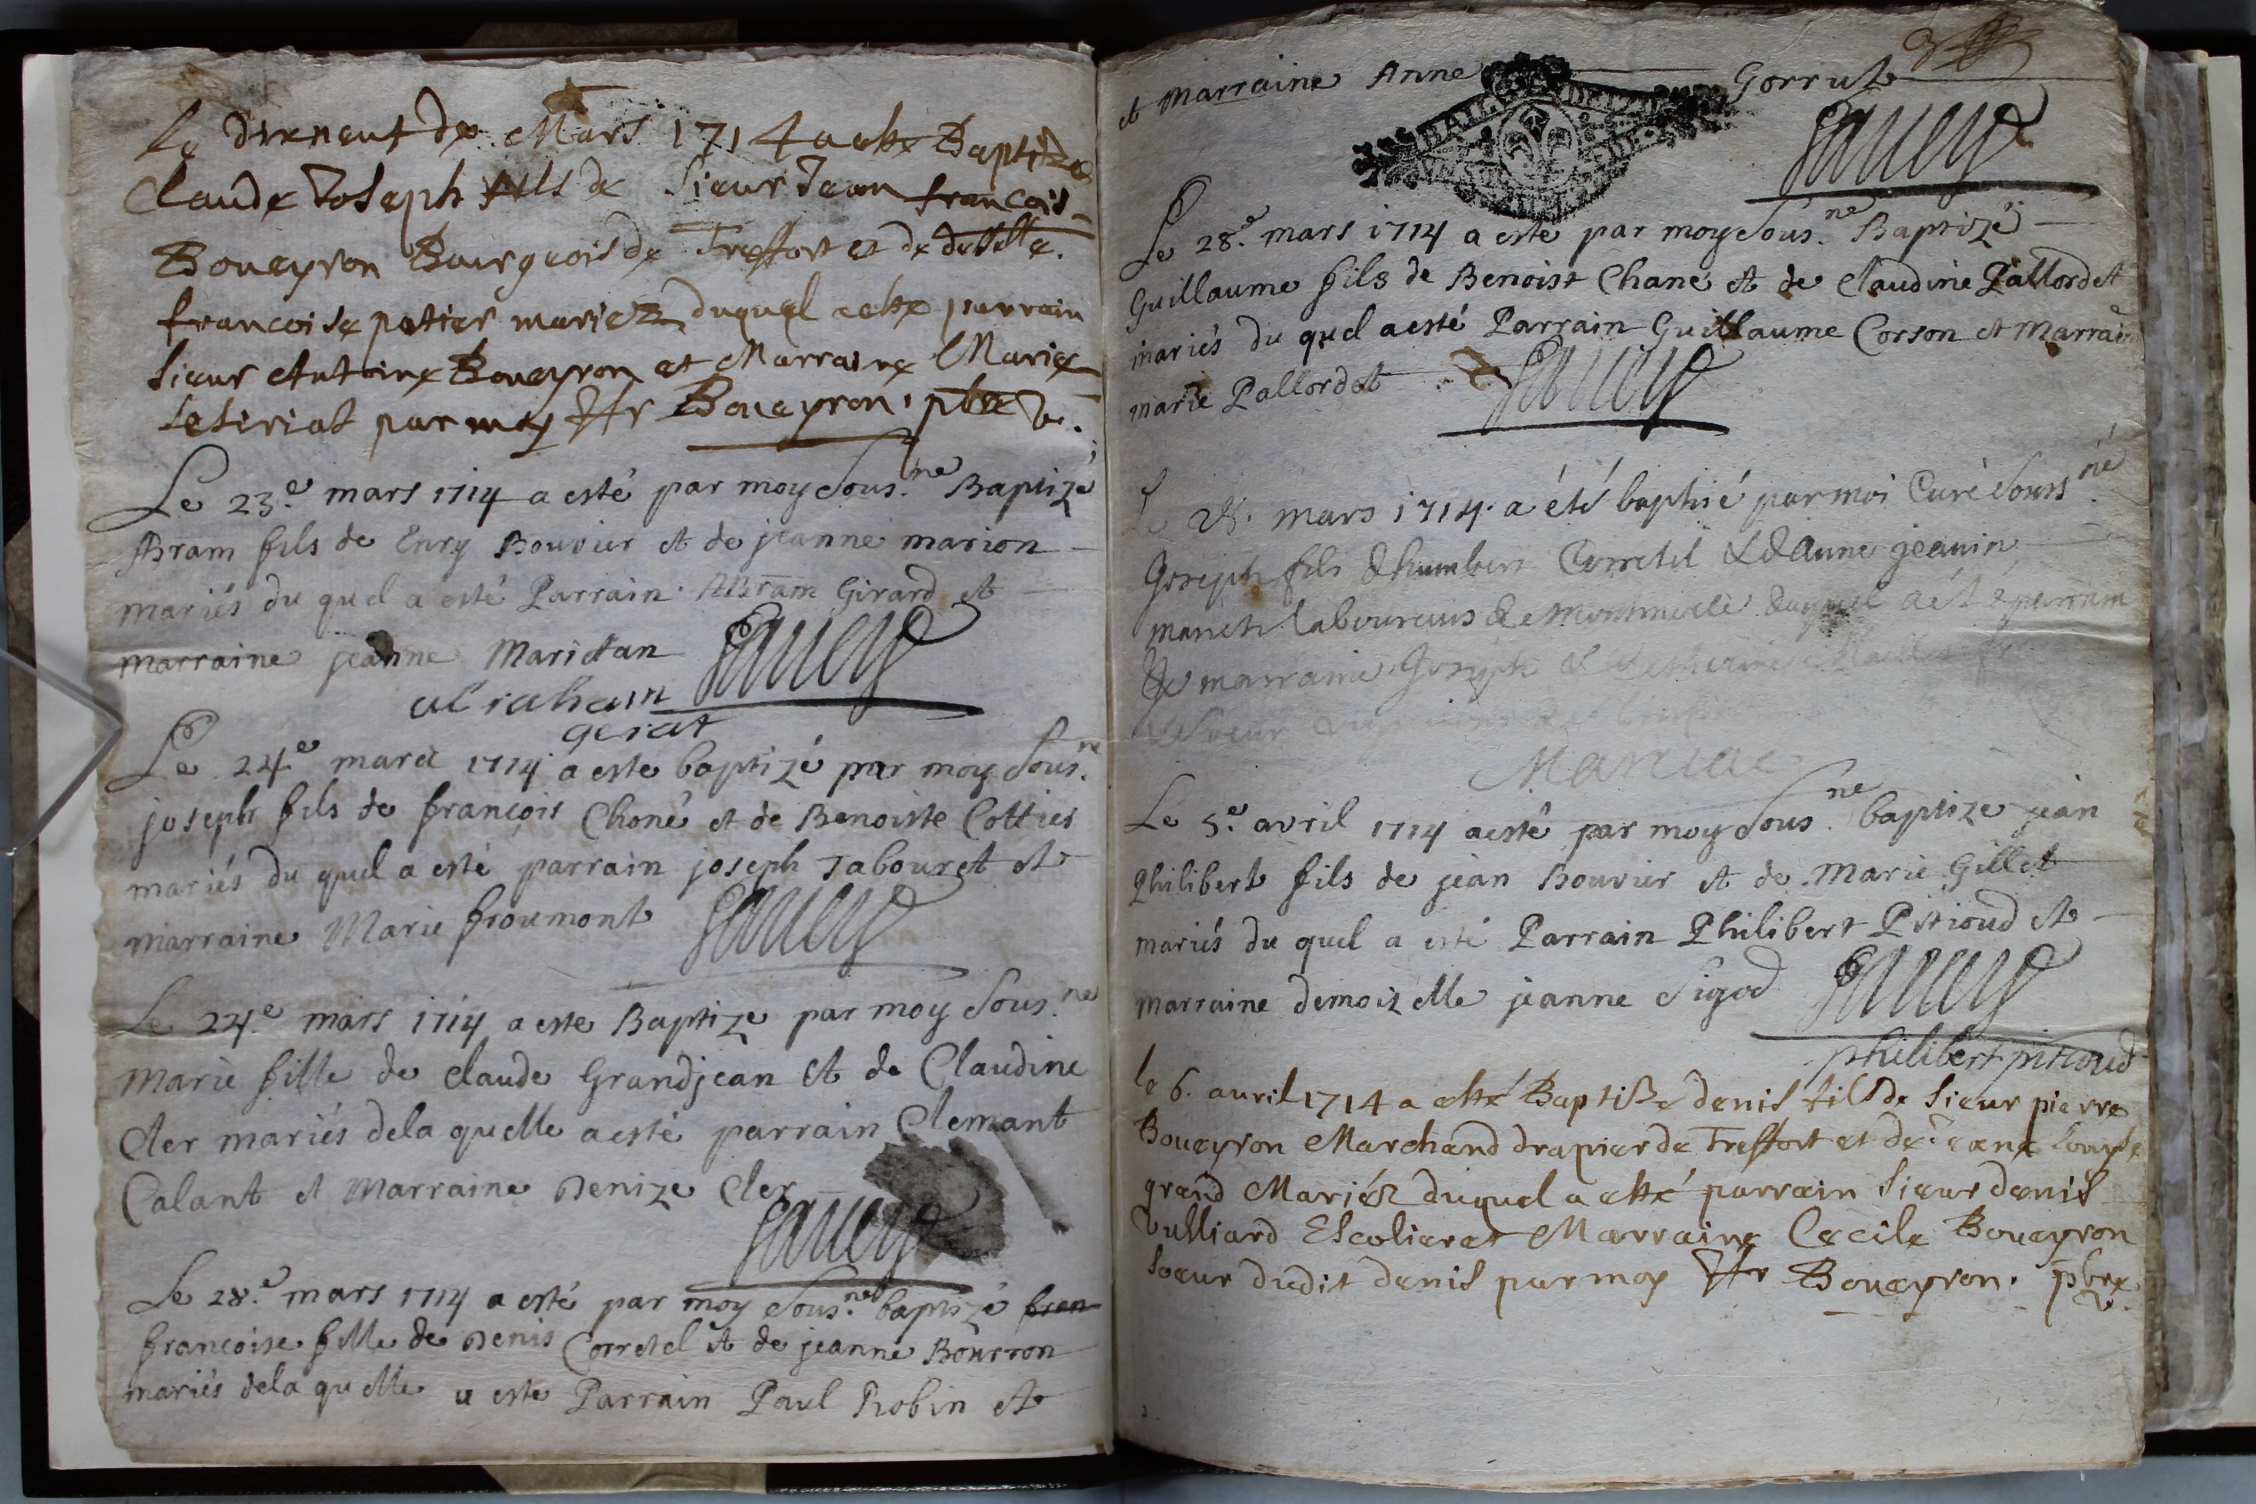 Le dixneuf de Mars 1714 a este Baptizé
Claude Joseph fils de Sieur Jean francois
Boueyron Bourgeois de Treffort et de delle.
francoise potier mariez duquel a este parrain
Sieur Antoine Boueyron et Marraine Marie
par moy Boueyron, pbre v.
Le 23.e mars 1714 a esté par moy Sous.né Baptizé
Abram fils de Enry Bouvier et de jeanne marion
mariés du quel a esté Parrain Abram Girard et
marraine jeanne Maridan
abraham
gerat
Le 24.e mars 1714 a este baptizé par moy Sous.né
joseph fils de françois Choné et de Benoiste Cottier
mariés du quel a esté parrain joseph Tabouret et
marraine Marie froumont
Le 24.e mars 1714 a este Baptize par moy Sous.né
Marie fille de Claude Grandjean et de Claudine
Cler mariés dela quelle a esté parrain Clemant
Calant et Marraine Denize Cler
Le 28.e mars 1714 a esté par moy Sous.né baptizé fran
francoise fille de Denis Corretel et de jeanne Bourron
mariés dela quelle a este Parrain Paul Robin et
et Marraine Anne Gorrut
Le 28.e mars 1714 a esté par moy Sous.né Baptizé
Guillaume fils de Benoist Chané et de Claudine Pallordet
mariés du quel a esté Parrain Guillaume Corson et Marraine
marie Pallordet
Le 28. mars 1714. a été baptisé par moi Curé Souss.né
Joseph fils d'humbert Corretel & d'Anne jeanin
laboureurs de duquel a été parrain
& marraine Joseph &
Le 5.e avril 1714 a esté par moy Sous.né baptize jean
Philibert fils de jean Bouvier et de Marie Gillet
mariés du quel a esté Parrain Philibert Pitioud et
marraine demoizelle jeanne Sigod
philibert pitioud
le 6. auril 1714 a esté Baptisé denis fils de Sieur pierre
Boueyron Marchand drapier de Treffort et de Jeane Louyse
grand Mariéz duquel a esté parrain Sieur denis
Vulliard Escolier et Marraine Cecile Boueyron
Soeur dudit denis par moy Boueyron. pbre
v.